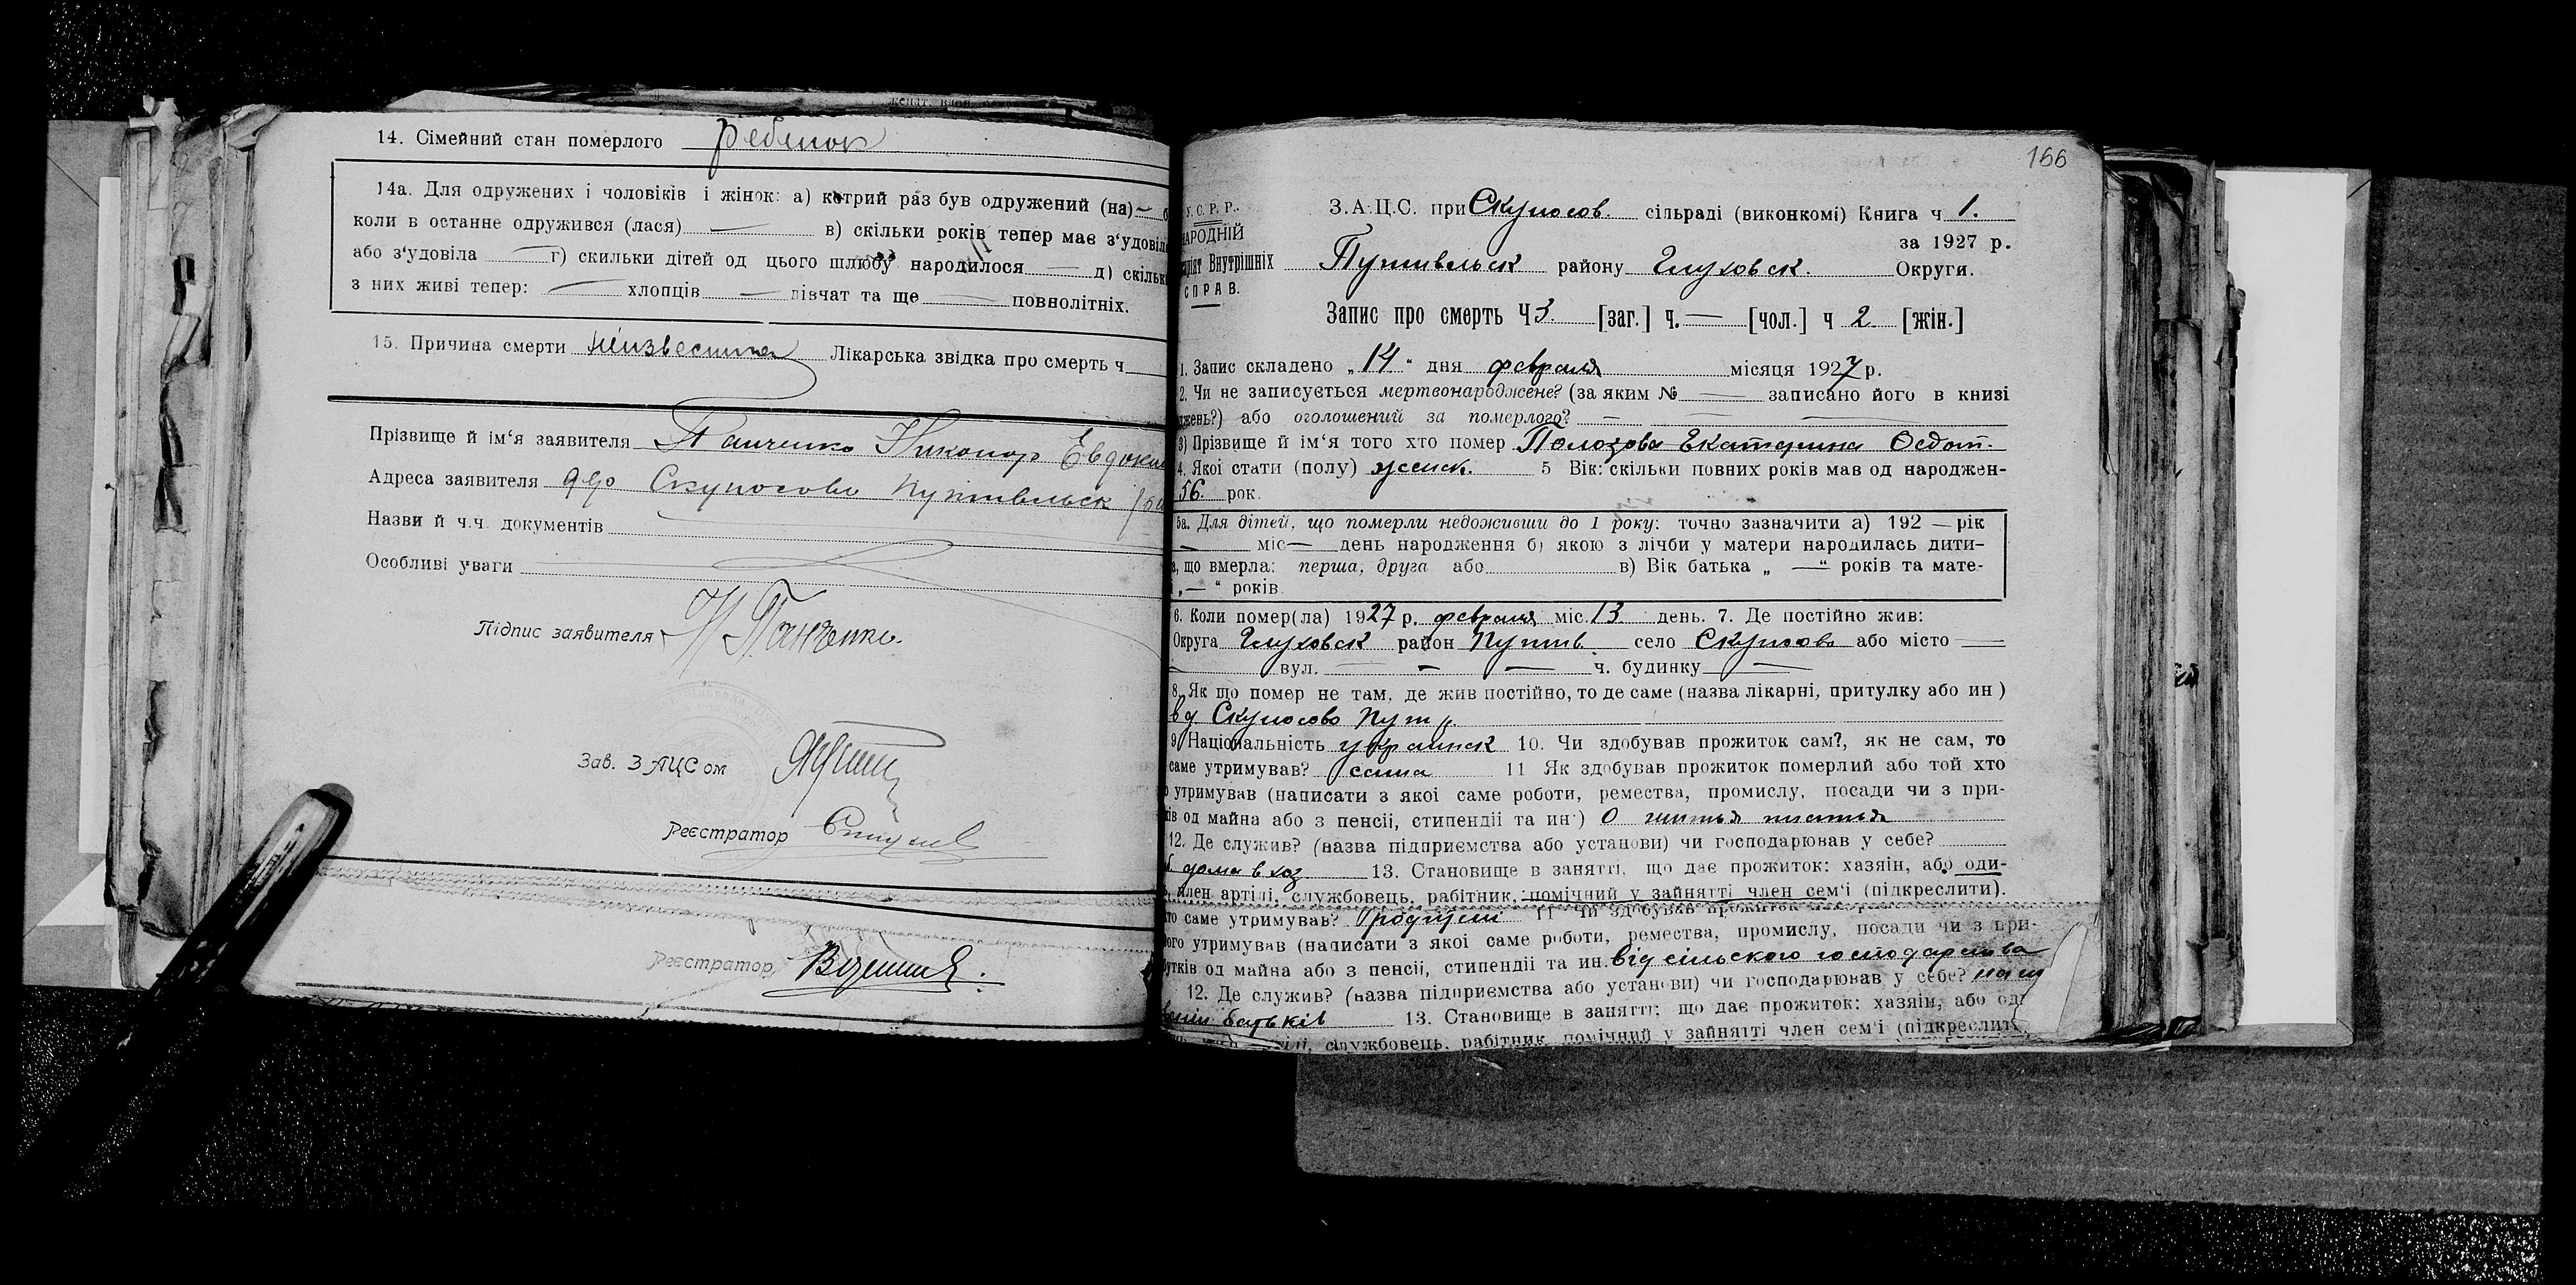 14. Сімейний стан померлого ребенок
14а. Для одружених і чоловіків і жінок: а) котрий раз був одружений (на) —
коли в останне одружився (лася) — в) скільки років тепер має з'удовіл
або з'удовіла — г) скильки дітей од цього шлюбу народилося — д) скільк
з них живі тепер: — хлопців — дівчат та ще — повнолітніх.
15. Причина смерти неизвестна Лікарська звідка про смерть ч
Прізвище й ім'я заявителя Панченко Никонор Евдоким
Адреса заявителя Скуносово Путивльск
Назви й ч.ч. документів
Особливі уваги
Підпис заявителя Н Панченко.
Зав. ЗАЦСом
Реєстратор
Реєстратор
166
У.С.Р.Р. З.А.Ц.С. при Скуносов. сільраді (виконкомі) Книга ч 1.
НАРОДНІЙ за 1927 р.
Внутрішніх Путивльск району Глуховск. Округи.
СПРАВ.
Запис про смерть Ч 3. [заг.] ч. — [чол.] ч 2. [жін.]
1. Запис складено „14" дня февраля місяця 1927 р.
2. Чи не записується мертвонароджене? (за яким № — записано його в книзі
джень?) або оголошений за померлого? — — —
3) Прізвище й ім'я того хто помер Полозова Екатерина Федот.
4. Якої стати (полу) женск. 5 Вік: скільки повних років мав од народжен-
56 рок.
5а. Для дітей, що померли недоживши до 1 року: точно зазначити а) 192 — рік
— міс — день народження б) якою з лічби у матери народилась дити-
а, що вмерла: перша, друга або в) Вік батька „ —" років та мате-
„—" років.
6. Коли помер(ла) 1927 р. февраля міс. 13 день. 7. Де постійно жив:
Округа Глуховск район Путив. село Скуносово або місто —
— вул. — — — ч. будинку —
8. Як що помер не там, де жив постійно, то де саме (назва лікарні, притулку або ин)
в д. Скуносово Пут р.
9. Національність украинск 10. Чи здобував прожиток сам?, як не сам, то
саме утримував? сама 11 Як здобував прожиток померлий або той хто
утримував (написати з якоі саме роботи, ремества, промислу, посади чи з при-
ків од майна або з пенсіі, стипендіі та ин)
12. Де служив? (назва підприємства або установи) чи господарював у себе?
дома в хоз. 13. Становище в занятті, що дає прожиток: хазяін, або оди-
член артілі, службовець, рабітник, помічний у зайнятті член сем'і (підкреслити).
то саме утримував? родители 11 Чи здобував прожиток
ого утримував (написати з якоі саме роботи, ремества, промислу, посади чи з при-
утків од майна або з пенсіі, стипендіі та ин. від сільського господарства
12. Де служив? (назва підприємства або установи) чи господарював у себе?
батьків 13. Становище в занятті; що дає прожиток: хазяін, або од
службовець, рабітник, помічний у зайнятті член сем'і (підкреслит